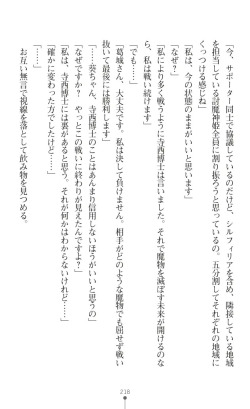 「今、サポーター同士で協議しているのだけど、シルフィリアを含め、隣接している地域
を担当している討魔神姫全員に割り振ろうと思っているの。五分割してそれぞれの地域に
くっつける感じね」
「私は、今の状態のままがいいと思います」
「なぜ？」
「私により多く戦うように寺西博士は言いました。それで魔物を滅ぼす未来が開けるのな
ら、私は戦い続けます」
「でも……」
「葛城さん、大丈夫です。私は決して負けません。相手がどのような魔物でも屈せず戦い
抜いて最後には勝利します」
「……葵ちゃん、寺西博士のことはあんまり信用しないほうがいいと思うの」
「なぜですか？　やっとこの戦いに終わりが見えたんですよ？」
「私は、寺西博士には裏があると思う。それが何かはわからないけれど……」
「確かに変わった方でしたけど……」
「……」
お互い無言で視線を落として飲み物を見つめる。
218